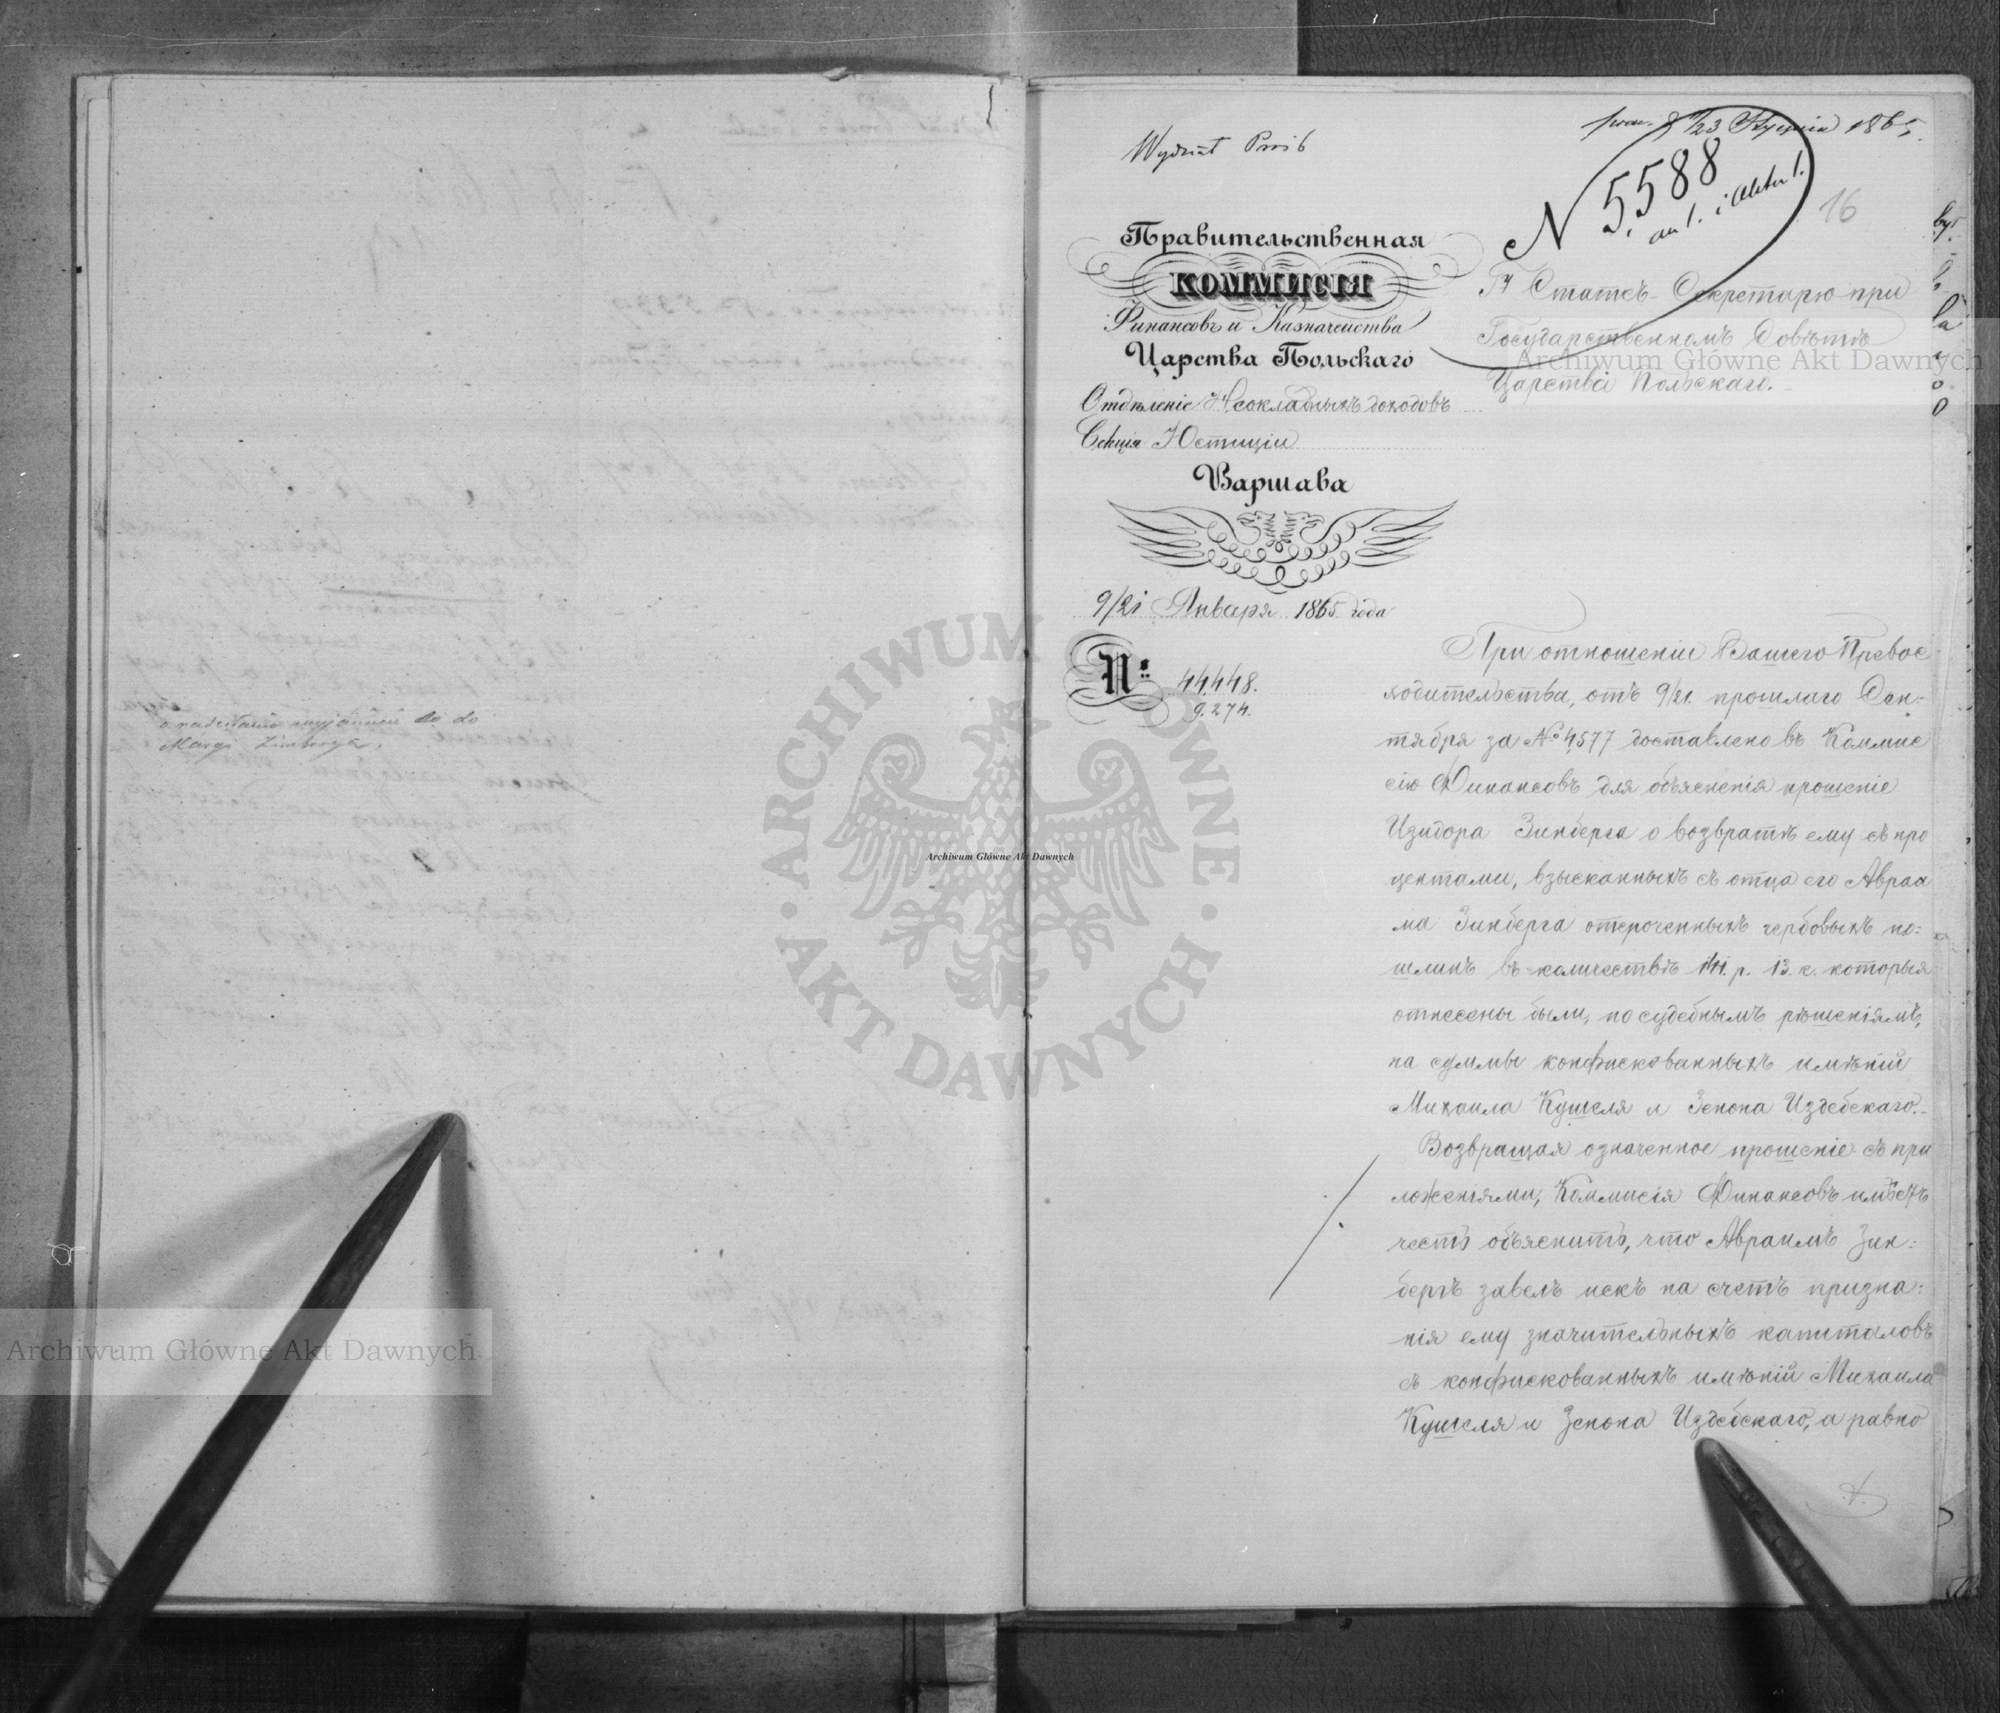 o nadesłanie wyjaśnień co do
Margi Zimberga.
Wydział Proś b
prez. d. 11/23 Stycznia 1865.
N 5588
16
Правительственная
КОММИСІЯ
Финансовъ и Казначейства
Царства Польскаго
Отдѣленіе Неокладныхъ доходовъ
Секція Юстиціи
Варшава
9/21 Января 1865 года
№: 44.448.
9.274.
Гн Статсъ-Секретарю при
Государственномъ Совѣтѣ
Царства Польскаго.
При отношеніи Вашего Превос
ходительства, отъ 9/21 прошлаго Сен-
тября за № 4,577 доставлено въ Коммис
сію Финансовъ для объясненія прошеніе
Изидора Зинберга о возвратѣ ему съ про
центами, взысканныхъ съ отца его Авраа
ма Зинберга отсроченныхъ гербовыхъ по-
шлинъ въ количествѣ 141. р. 13. к. которыя
отнесены были, по судебнымъ рѣшеніямъ,
на суммы конфискованныхъ имѣній
Михаила Кушеля и Зенона Издебскаго.
Возвращая означенное прошеніе съ при
ложеніями, Коммисія Финансовъ имѣетъ
честь объяснить, что Авраамъ Зин-
бергъ завелъ искъ на счетъ призна-
нія ему значительныхъ капиталовъ
съ конфискованныхъ имѣній Михаила
Кушеля и Зенона Издебскаго, а равно
Archiwum Główne Akt Dawnych
Archiwum Główne Akt Dawnych
Archiwum Główne Akt Dawnych
ARCHIWUM GŁÓWNE
AKT DAWNYCH